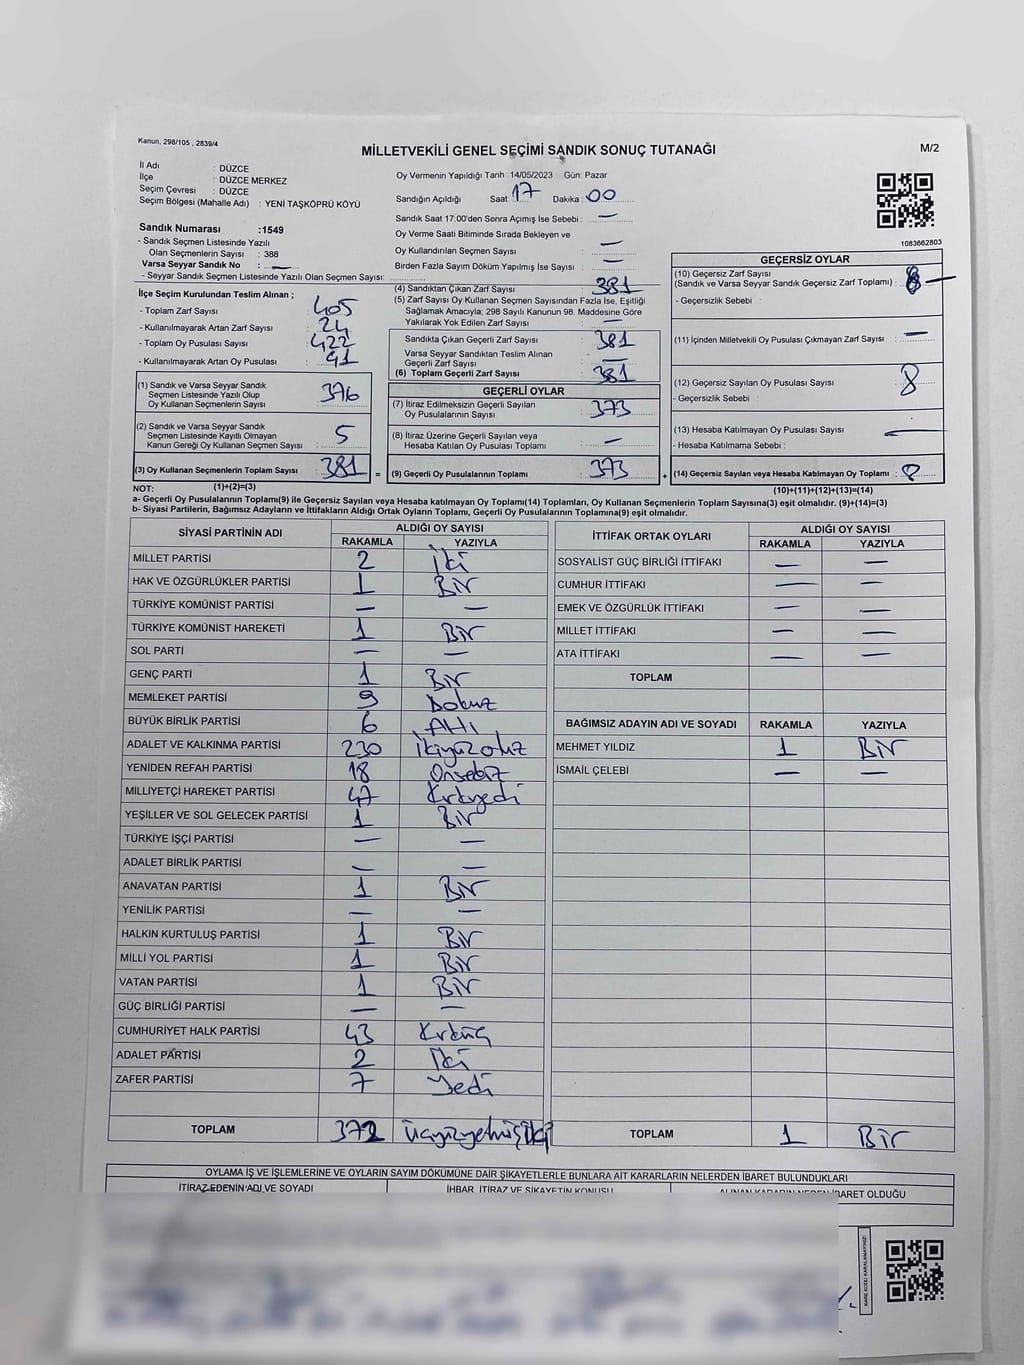 Kanun, 298/105 , 2839/4
MİLLETVEKİLİ GENEL SEÇİMİ SANDIK SONUÇ TUTANAĞI
M/2
İl Adı : DÜZCE
İlçe : DÜZCE MERKEZ
Seçim Çevresi : DÜZCE
Seçim Bölgesi (Mahalle Adı) : YENİ TAŞKÖPRÜ KÖYÜ
Sandık Numarası :1549
- Sandık Seçmen Listesinde Yazılı
Olan Seçmenlerin Sayısı : 388
Varsa Seyyar Sandık No : —
- Seyyar Sandık Seçmen Listesinde Yazılı Olan Seçmen Sayısı:
Oy Vermenin Yapıldığı Tarih :14/05/2023 Gün: Pazar
Sandığın Açıldığı Saat 17 Dakika 00
Sandık Saat 17:00'den Sonra Açımış İse Sebebi : —
Oy Verme Saati Bitiminde Sırada Bekleyen ve
Oy Kullandırılan Seçmen Sayısı : —
Birden Fazla Sayım Döküm Yapılmış İse Sayısı : —
1083662803
İlçe Seçim Kurulundan Teslim Alınan ;
- Toplam Zarf Sayısı : 405
- Kullanılmayarak Artan Zarf Sayısı : 24
- Toplam Oy Pusulası Sayısı : 422
- Kullanılmayarak Artan Oy Pusulası : 41
(1) Sandık ve Varsa Seyyar Sandık
Seçmen Listesinde Yazılı Olup
Oy Kullanan Seçmenlerin Sayısı : 376
(2) Sandık ve Varsa Seyyar Sandık
Seçmen Listesinde Kayıtlı Olmayan
Kanun Gereği Oy Kullanan Seçmen Sayısı : 5
(3) Oy Kullanan Seçmenlerin Toplam Sayısı : 381 =
(4) Sandıktan Çıkan Zarf Sayısı : 381
(5) Zarf Sayısı Oy Kullanan Seçmen Sayısından Fazla İse, Eşitliği
Sağlamak Amacıyla; 298 Sayılı Kanunun 98. Maddesine Göre
Yakılarak Yok Edilen Zarf Sayısı : —
Sandıkta Çıkan Geçerli Zarf Sayısı : 381
Varsa Seyyar Sandıktan Teslim Alınan
Geçerli Zarf Sayısı : —
(6) Toplam Geçerli Zarf Sayısı : 381
GEÇERLİ OYLAR
(7) İtiraz Edilmeksizin Geçerli Sayılan
Oy Pusulalarının Sayısı : 373
(8) İtiraz Üzerine Geçerli Sayılan veya
Hesaba Katılan Oy Pusulası Sayısı : —
(9) Geçerli Oy Pusulalarının Toplamı : 373 +
GEÇERSİZ OYLAR
(10) Geçersiz Zarf Sayısı
(Sandık ve Varsa Seyyar Sandık Geçersiz Zarf Toplamı) : —
- Geçersizlik Sebebi :
(11) İçinden Milletvekili Oy Pusulası Çıkmayan Zarf Sayısı : —
(12) Geçersiz Sayılan Oy Pusulası Sayısı : 8
- Geçersizlik Sebebi :
(13) Hesaba Katılmayan Oy Pusulası Sayısı : —
- Hesaba Katılmama Sebebi :
(14) Geçersiz Sayılan veya Hesaba Katılmayan Oy Toplamı : 8
NOT: (1)+(2)=(3) (10)+(11)+(12)+(13)=(14)
a- Geçerli Oy Pusulalarının Toplamı(9) ile Geçersiz Sayılan veya Hesaba katılmayan Oy Toplamı(14) Toplamları, Oy Kullanan Seçmenlerin Toplam Sayısına(3) eşit olmalıdır. (9)+(14)=(3)
b- Siyasi Partilerin, Bağımsız Adayların ve İttifakların Aldığı Ortak Oyların Toplamı, Geçerli Oy Pusulalarının Toplamına(9) eşit olmalıdır.
SİYASİ PARTİNİN ADI ALDIĞI OY SAYISI
RAKAMLA YAZIYLA
MİLLET PARTİSİ 2 İki
HAK VE ÖZGÜRLÜKLER PARTİSİ 1 Bir
TÜRKİYE KOMÜNİST PARTİSİ — —
TÜRKİYE KOMÜNİST HAREKETİ 1 Bir
SOL PARTİ — —
GENÇ PARTİ 1 Bir
MEMLEKET PARTİSİ 9 Dokuz
BÜYÜK BİRLİK PARTİSİ 6 Altı
ADALET VE KALKINMA PARTİSİ 230 İkiyüzotuz
YENİDEN REFAH PARTİSİ 18 Onsekiz
MİLLİYETÇİ HAREKET PARTİSİ 47 Kırkyedi
YEŞİLLER VE SOL GELECEK PARTİSİ 1 Bir
TÜRKİYE İŞÇİ PARTİSİ — —
ADALET BİRLİK PARTİSİ — —
ANAVATAN PARTİSİ 1 Bir
YENİLİK PARTİSİ — —
HALKIN KURTULUŞ PARTİSİ 1 Bir
MİLLİ YOL PARTİSİ 1 Bir
VATAN PARTİSİ 1 Bir
GÜÇ BİRLİĞİ PARTİSİ — —
CUMHURİYET HALK PARTİSİ 43 Kırküç
ADALET PARTİSİ 2 İki
ZAFER PARTİSİ 7 Yedi
TOPLAM 372 Üçyüzyetmişiki
İTTİFAK ORTAK OYLARI ALDIĞI OY SAYISI
RAKAMLA YAZIYLA
SOSYALİST GÜÇ BİRLİĞİ İTTİFAKI — —
CUMHUR İTTİFAKI — —
EMEK VE ÖZGÜRLÜK İTTİFAKI — —
MİLLET İTTİFAKI — —
ATA İTTİFAKI — —
TOPLAM
BAĞIMSIZ ADAYIN ADI VE SOYADI RAKAMLA YAZIYLA
MEHMET YILDIZ 1 Bir
İSMAİL ÇELEBİ — —
TOPLAM 1 Bir
OYLAMA İŞ VE İŞLEMLERİNE VE OYLARIN SAYIM DÖKÜMÜNE DAİR ŞİKAYETLERLE BUNLARA AİT KARARLARIN NELERDEN İBARET BULUNDUKLARI
İTİRAZ EDENİN ADI VE SOYADI İHBAR, İTİRAZ VE ŞİKAYETİN KONUSU ALINAN KARARIN NEDEN İBARET OLDUĞU
KARE KODU KARALAMAYINIZ!